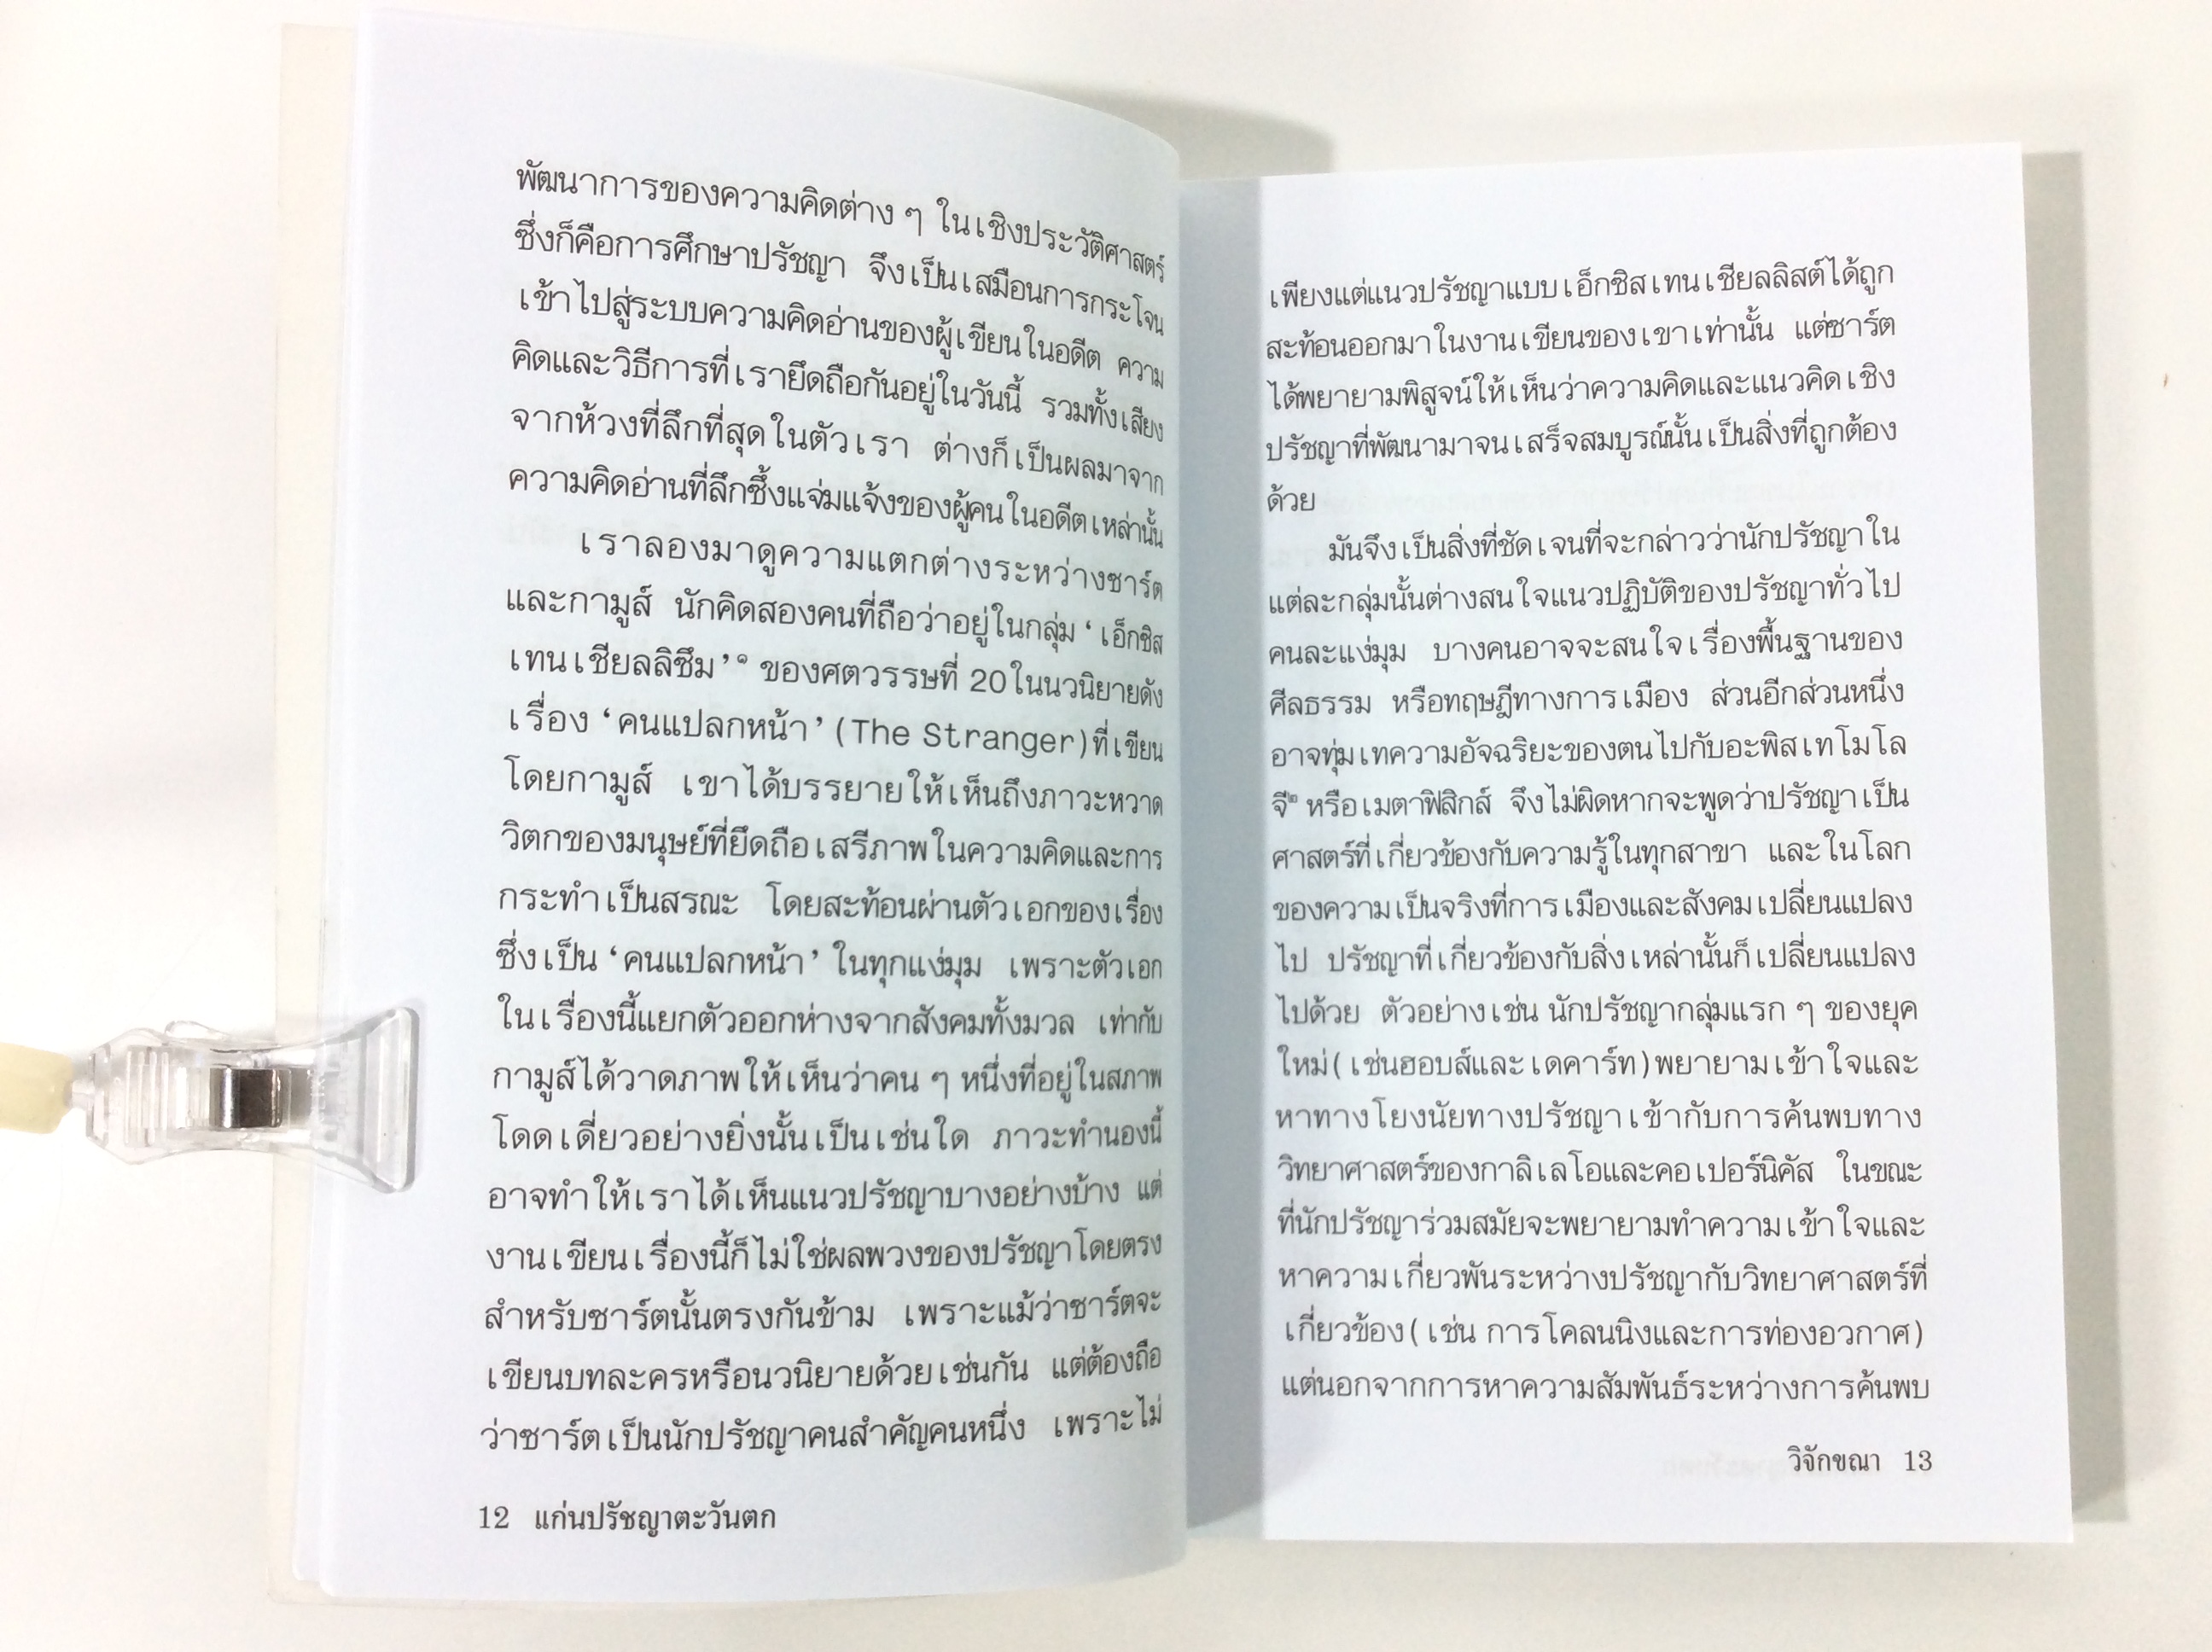 พัฒนาการของความคิดต่าง ๆ ในเชิงประวัติศาสตร์
ซึ่งก็คือการศึกษาปรัชญา จึงเป็นเสมือนการกระโจน
เข้าไปสู่ระบบความคิดอ่านของผู้เขียนในอดีต ความ
คิดและวิธีการที่เรายึดถือกันอยู่ในวันนี้ รวมทั้งเสียง
จากห้วงที่ลึกที่สุดในตัวเรา ต่างก็เป็นผลมาจาก
ความคิดอ่านที่ลึกซึ้งแจ่มแจ้งของผู้คนในอดีตเหล่านั้น
เราลองมาดูความแตกต่างระหว่างซาร์ต
และกามูส์ นักคิดสองคนที่ถือว่าอยู่ในกลุ่ม ‘เอ็กซิส
เทนเชียลลิซึม’๑ ของศตวรรษที่ 20 ในนวนิยายดัง
เรื่อง ‘คนแปลกหน้า’ (The Stranger) ที่เขียน
โดยกามูส์ เขาได้บรรยายให้เห็นถึงภาวะหวาด
วิตกของมนุษย์ที่ยึดถือเสรีภาพในความคิดและการ
กระทำเป็นสรณะ โดยสะท้อนผ่านตัวเอกของเรื่อง
ซึ่งเป็น ‘คนแปลกหน้า’ ในทุกแง่มุม เพราะตัวเอก
ในเรื่องนี้แยกตัวออกห่างจากสังคมทั้งมวล เท่ากับ
กามูส์ได้วาดภาพให้เห็นว่าคน ๆ หนึ่งที่อยู่ในสภาพ
โดดเดี่ยวอย่างยิ่งนั้นเป็นเช่นใด ภาวะทำนองนี้
อาจทำให้เราได้เห็นแนวปรัชญาบางอย่างบ้าง แต่
งานเขียนเรื่องนี้ก็ไม่ใช่ผลพวงของปรัชญาโดยตรง
สำหรับซาร์ตนั้นตรงกันข้าม เพราะแม้ว่าซาร์ตจะ
เขียนบทละครหรือนวนิยายด้วยเช่นกัน แต่ต้องถือ
ว่าซาร์ตเป็นนักปรัชญาคนสำคัญคนหนึ่ง เพราะไม่
12 แก่นปรัชญาตะวันตก
เพียงแต่แนวปรัชญาแบบเอ็กซิสเทนเชียลลิสต์ได้ถูก
สะท้อนออกมาในงานเขียนของเขาเท่านั้น แต่ซาร์ต
ได้พยายามพิสูจน์ให้เห็นว่าความคิดและแนวคิดเชิง
ปรัชญาที่พัฒนามาจนเสร็จสมบูรณ์นั้นเป็นสิ่งที่ถูกต้อง
ด้วย
มันจึงเป็นสิ่งที่ชัดเจนที่จะกล่าวว่านักปรัชญาใน
แต่ละกลุ่มนั้นต่างสนใจแนวปฏิบัติของปรัชญาทั่วไป
คนละแง่มุม บางคนอาจจะสนใจเรื่องพื้นฐานของ
ศีลธรรม หรือทฤษฎีทางการเมือง ส่วนอีกส่วนหนึ่ง
อาจทุ่มเทความอัจฉริยะของตนไปกับอะพิสเทโมโล
จี๒ หรือเมตาฟิสิกส์ จึงไม่ผิดหากจะพูดว่าปรัชญาเป็น
ศาสตร์ที่เกี่ยวข้องกับความรู้ในทุกสาขา และในโลก
ของความเป็นจริงที่การเมืองและสังคมเปลี่ยนแปลง
ไป ปรัชญาที่เกี่ยวข้องกับสิ่งเหล่านั้นก็เปลี่ยนแปลง
ไปด้วย ตัวอย่างเช่น นักปรัชญากลุ่มแรก ๆ ของยุค
ใหม่ (เช่นฮอบส์และเดคาร์ท) พยายามเข้าใจและ
หาทางโยงนัยทางปรัชญาเข้ากับการค้นพบทาง
วิทยาศาสตร์ของกาลิเลโอและคอเปอร์นิคัส ในขณะ
ที่นักปรัชญาร่วมสมัยจะพยายามทำความเข้าใจและ
หาความเกี่ยวพันระหว่างปรัชญากับวิทยาศาสตร์ที่
เกี่ยวข้อง (เช่น การโคลนนิงและการท่องอวกาศ)
แต่นอกจากการหาความสัมพันธ์ระหว่างการค้นพบ
วิจักขณา 13